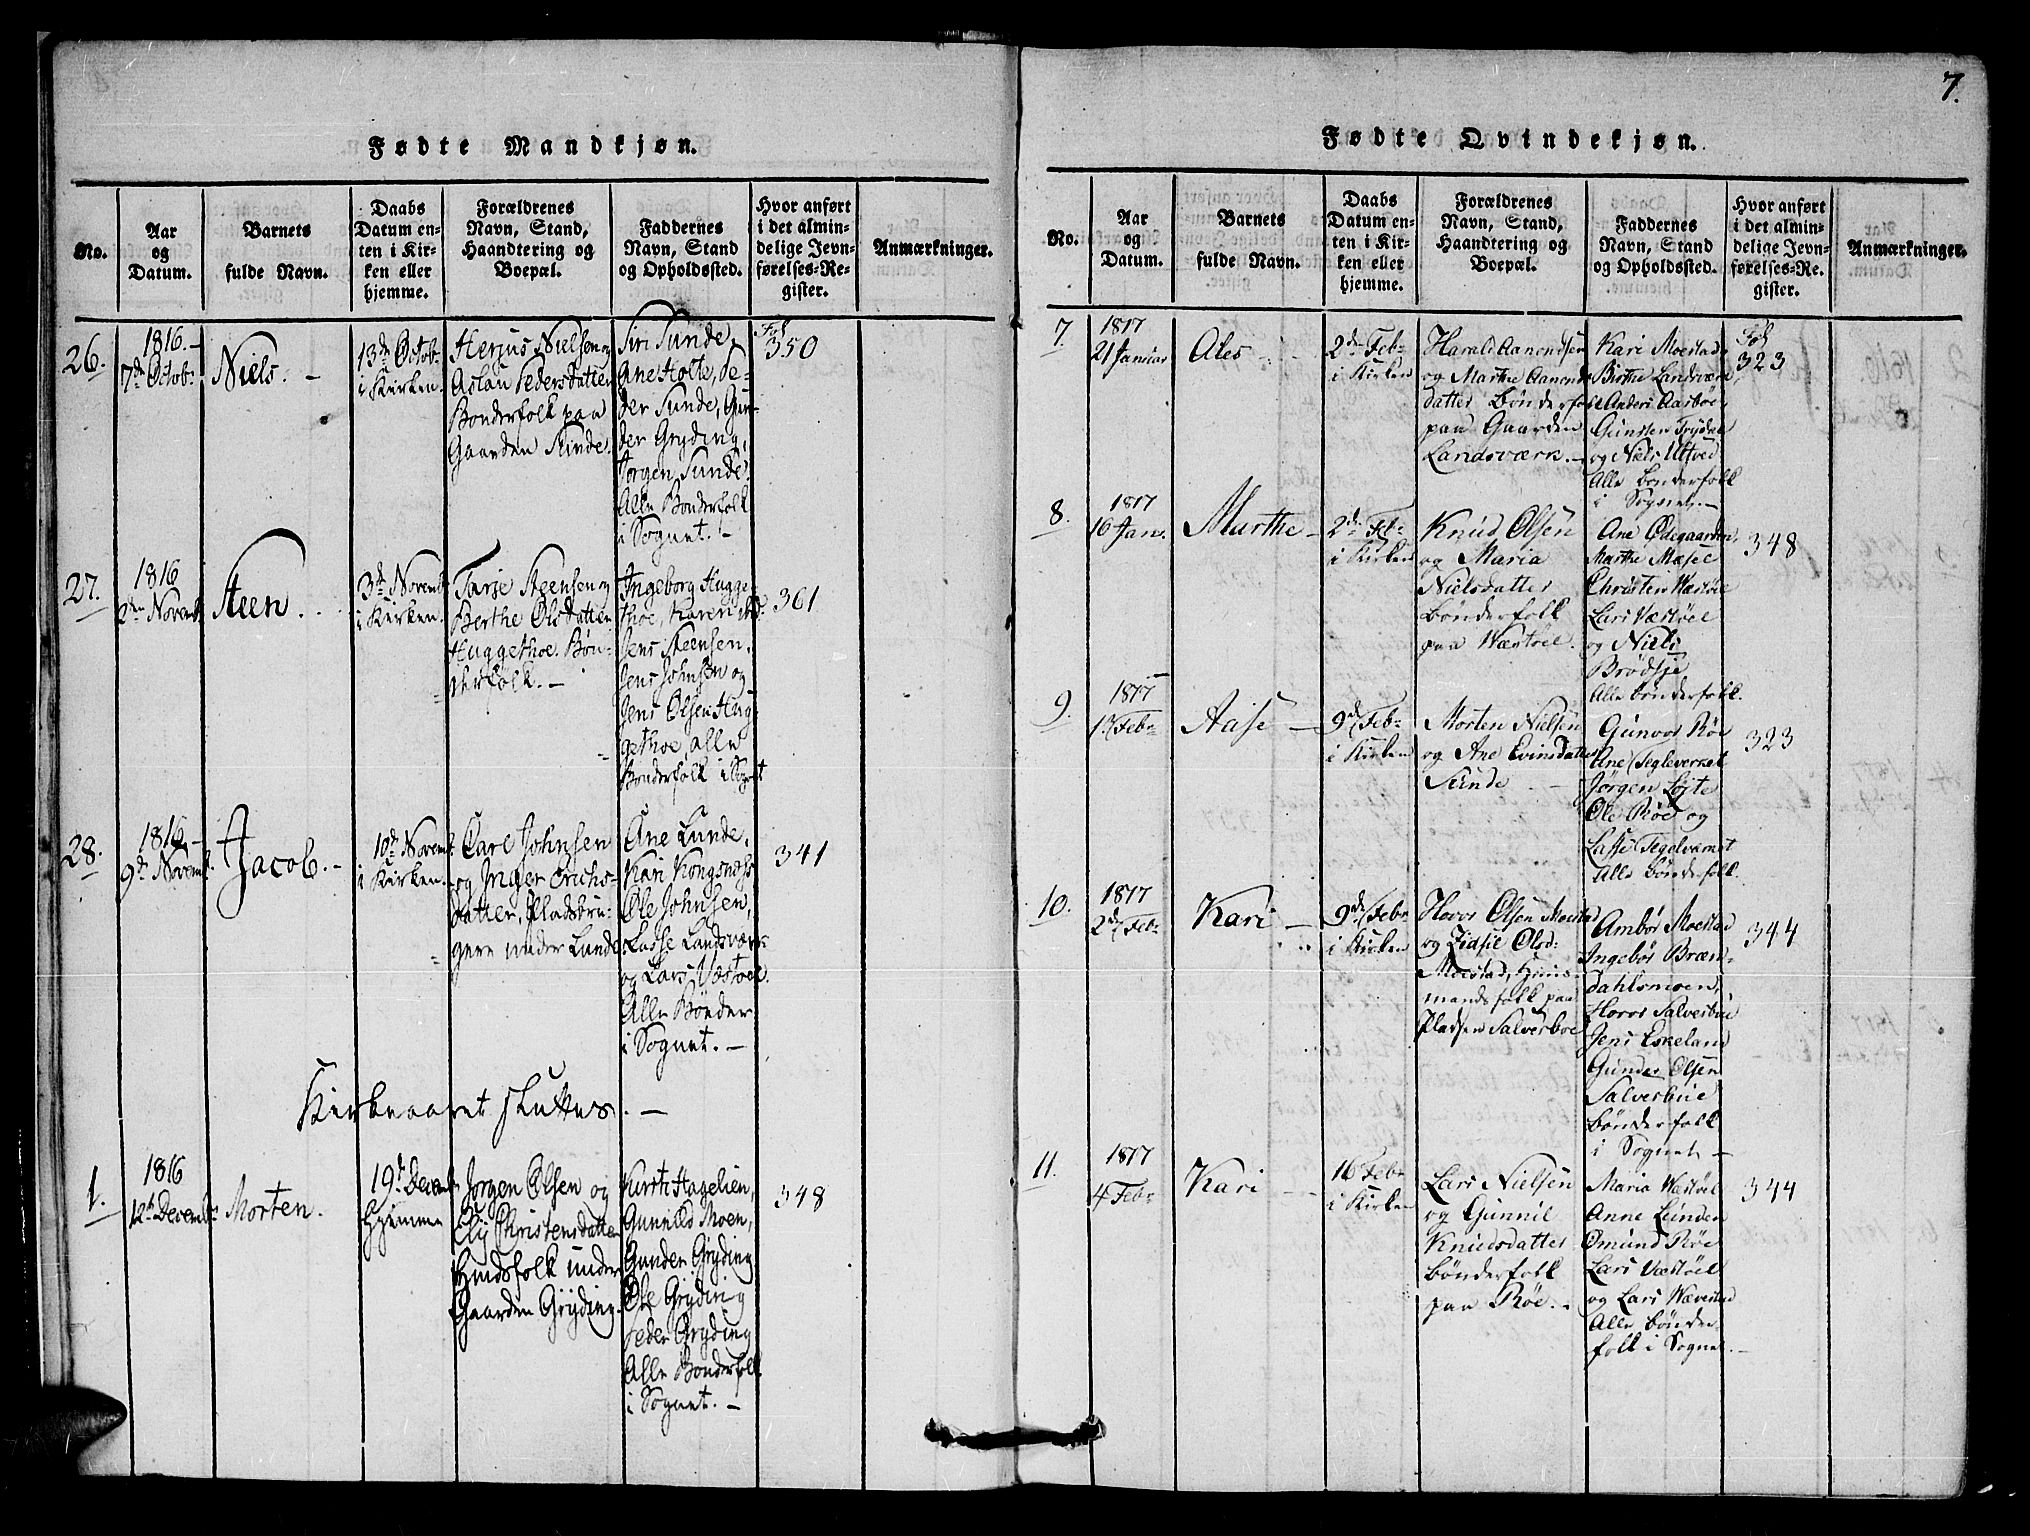 Fødte Mandkjøn.
No.
Aar
og
Datum.
Barnets
fulde Navn.
Daabs
Datum en-
ten i Kir-
ken eller
hjemme.
Forældrenes
Navn, Stand,
Haandtering og
Boepæl.
Faddernes
Navn, Stand
og Opholdssted.
Hvor anført
i det almin-
delige Jevn-
førelses-Re-
gister.
Anmærkninger.
26.
1816.-
7de Octob:
Niels. -
13de Octob:
i Kirken.
Herjus Nielsen og
Aslau Pedersdatter
Bonderfolk paa
Gaarden Sunde.
Siri Sunde,
Ane Holte, Pe-
der Sunde, Gun-
der Gryding,
Jørgen Sunde.
Alle Bønderfolk
i Sognet. -
Fol
350
27.
1816
2den Novemb.
Steen. . .
3de Novemb
i Kirken.
Tarje Steensen og
Berthe Olsdatter
Huggethoe. Bøn-
derfolk. -
Ingeborg Hugge-
thoe, Karen ibd.
Jens Steensen,
Jens Johnsen og
Jens Olsen Hug-
gethoe, alle
Bonderfolk i Sognet
361
28.
1816.-
9de Novemb.
Jacob. -
10de Novemb.
i Kirken.
Carl Johnsen
og Inger Erichs-
datter, Pladsbru-
gere under Lunde.
Ane Lunde,
Kari Kongsnæss
Ole Johnsen,
Lasse Landsværk
og Lars Væstøel.
Alle Bønder
i Sognet. -
341
Kirkeaaret sluttes. -
1.
1816
12te Decemb:
Morten.
19de Decemb
Hjemme
Jørgen Olsen og
Elij Christensdatter
Huusfolk under
Gaarden Gryding.
Kirsti Hagelien,
Gunnild Moen,
Gunder Gryding
Ole Gryding
Peder Gryding
Alle Bønderfolk
i Sognet. -
348
7.
Fødte Qvindekjøn.
No.
Aar
og
Datum.
Barnets
fulde Navn.
Daabs
Datum en-
ten i Kir-
ken eller
hjemme.
Forældrenes
Navn, Stand,
Haandtering og
Boepæl.
Faddernes
Navn, Stand
og Opholdssted.
Hvor anført
i det almin-
delige Jevn-
førelses-Re-
gister.
Anmærkninger.
7.
1817
21 Januar
Ales
2de Feb:
i Kirken
Harald Aanondsen
og Marthe Aanonds
datter Bønderfolk
paa Gaarden
Landsværk. -
Kari Moestad
Birthe Landsværk
Anders Aasboe,
Gunsten Frydal
og Niels Ultved
Alle Bønderfolk
i Sognet. -
Fol
323
8.
1817
16 Jan.
Marthe -
2de Feb:
i Kirken
Knud Olsen
og Maria
Nielsdatter
Bønderfolk
paa Wæstøel.
Ane Ødegaarden,
Marthe Mæsel
Christen Wæstøe
Lars Væstøel
og Niels
Brødsje
Alle bønderfolk.
348
9.
1817
1 Feb:
Aase -
9de Feb:
i Kirken
Morten Nielsen
og Ane Evinsdatter
Sunde
Gunvor Røe
Ane Tegleverket
Jørgen Løite
Ole Røe og
Lasse Tegelværket
Alle Bønderfolk
323
10.
1817
2de Feb:
Kari -
9de Feb:
i Kirken
Hovor Olsen Moestad
og Zidsie Olsd:
Moestad, Huus-
mandsfolk paa
Pladsen Salverboe
Ambør Moestad
Ingebør Bræn-
dahlsmoen,
Hovor Salverbue
Jens Eskeland
Gunder Olsen
Salverbue
Bønderfolk
i Sognet -
344
11.
1817
4 Feb:
Kari -
16 Feb:
i Kirken
Lars Nielsen
og Gunnil
Knudsdatter
Bønderfolk
paa Røe. -
Maria Wæstøel
Anne Lunden
Omund Røe
Lars Væstøel
og Lars Wævestad
Alle bønder-
folk i Sognet. -
344